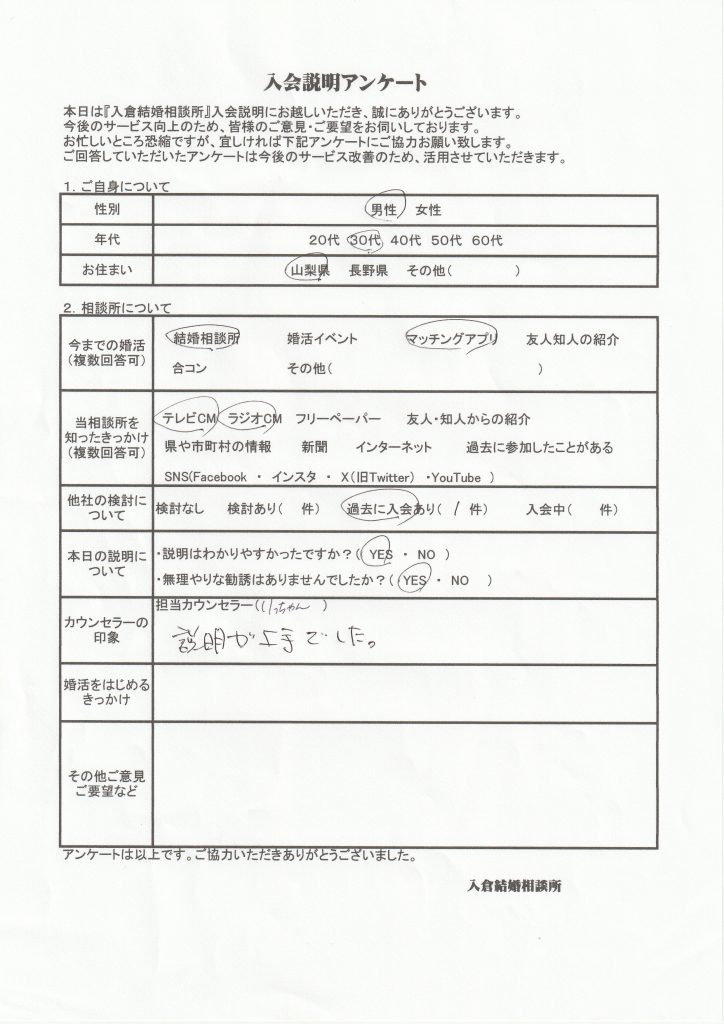 入会説明アンケート
本日は『入倉結婚相談所』入会説明にお越しいただき、誠にありがとうございます。
今後のサービス向上のため、皆様のご意見・ご要望をお伺いしております。
お忙しいところ恐縮ですが、宜しければ下記アンケートにご協力お願い致します。
ご回答していただいたアンケートは今後のサービス改善のため、活用させていただきます。
1. ご自身について
性別 男性 女性
年代 20代 30代 40代 50代 60代
お住まい 山梨県 長野県 その他( )
2. 相談所について
今までの婚活
(複数回答可)
結婚相談所 婚活イベント マッチングアプリ 友人知人の紹介
合コン その他( )
当相談所を
知ったきっかけ
(複数回答可)
テレビCM ラジオCM フリーペーパー 友人・知人からの紹介
県や市町村の情報 新聞 インターネット 過去に参加したことがある
SNS(Facebook ・ インスタ ・ X(旧Twitter) ・YouTube )
他社の検討に
ついて
検討なし 検討あり( 件) 過去に入会あり( / 件) 入会中( 件)
本日の説明に
ついて
・説明はわかりやすかったですか?( YES ・ NO )
・無理やりな勧誘はありませんでしたか?( YES ・ NO )
カウンセラーの
印象
担当カウンセラー(りっちゃん )
説明が上手でした。
婚活をはじめる
きっかけ
その他ご意見
ご要望など
アンケートは以上です。ご協力いただきありがとうございました。
入倉結婚相談所